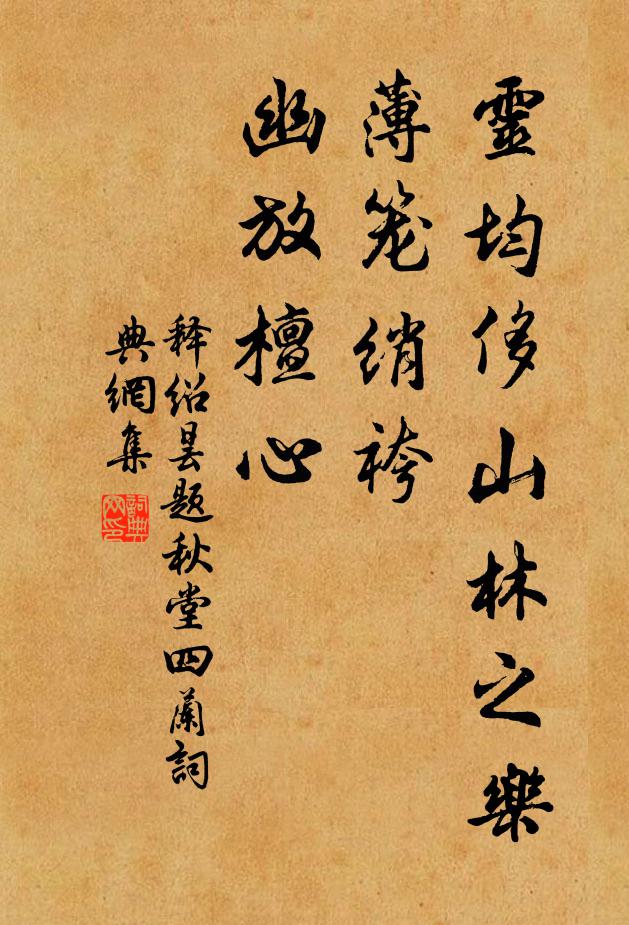 靈均侈山林之樂
薄笼绡袴
幽放檀心
释绍昙题秋堂四蘭詞
典網集
詞典網印